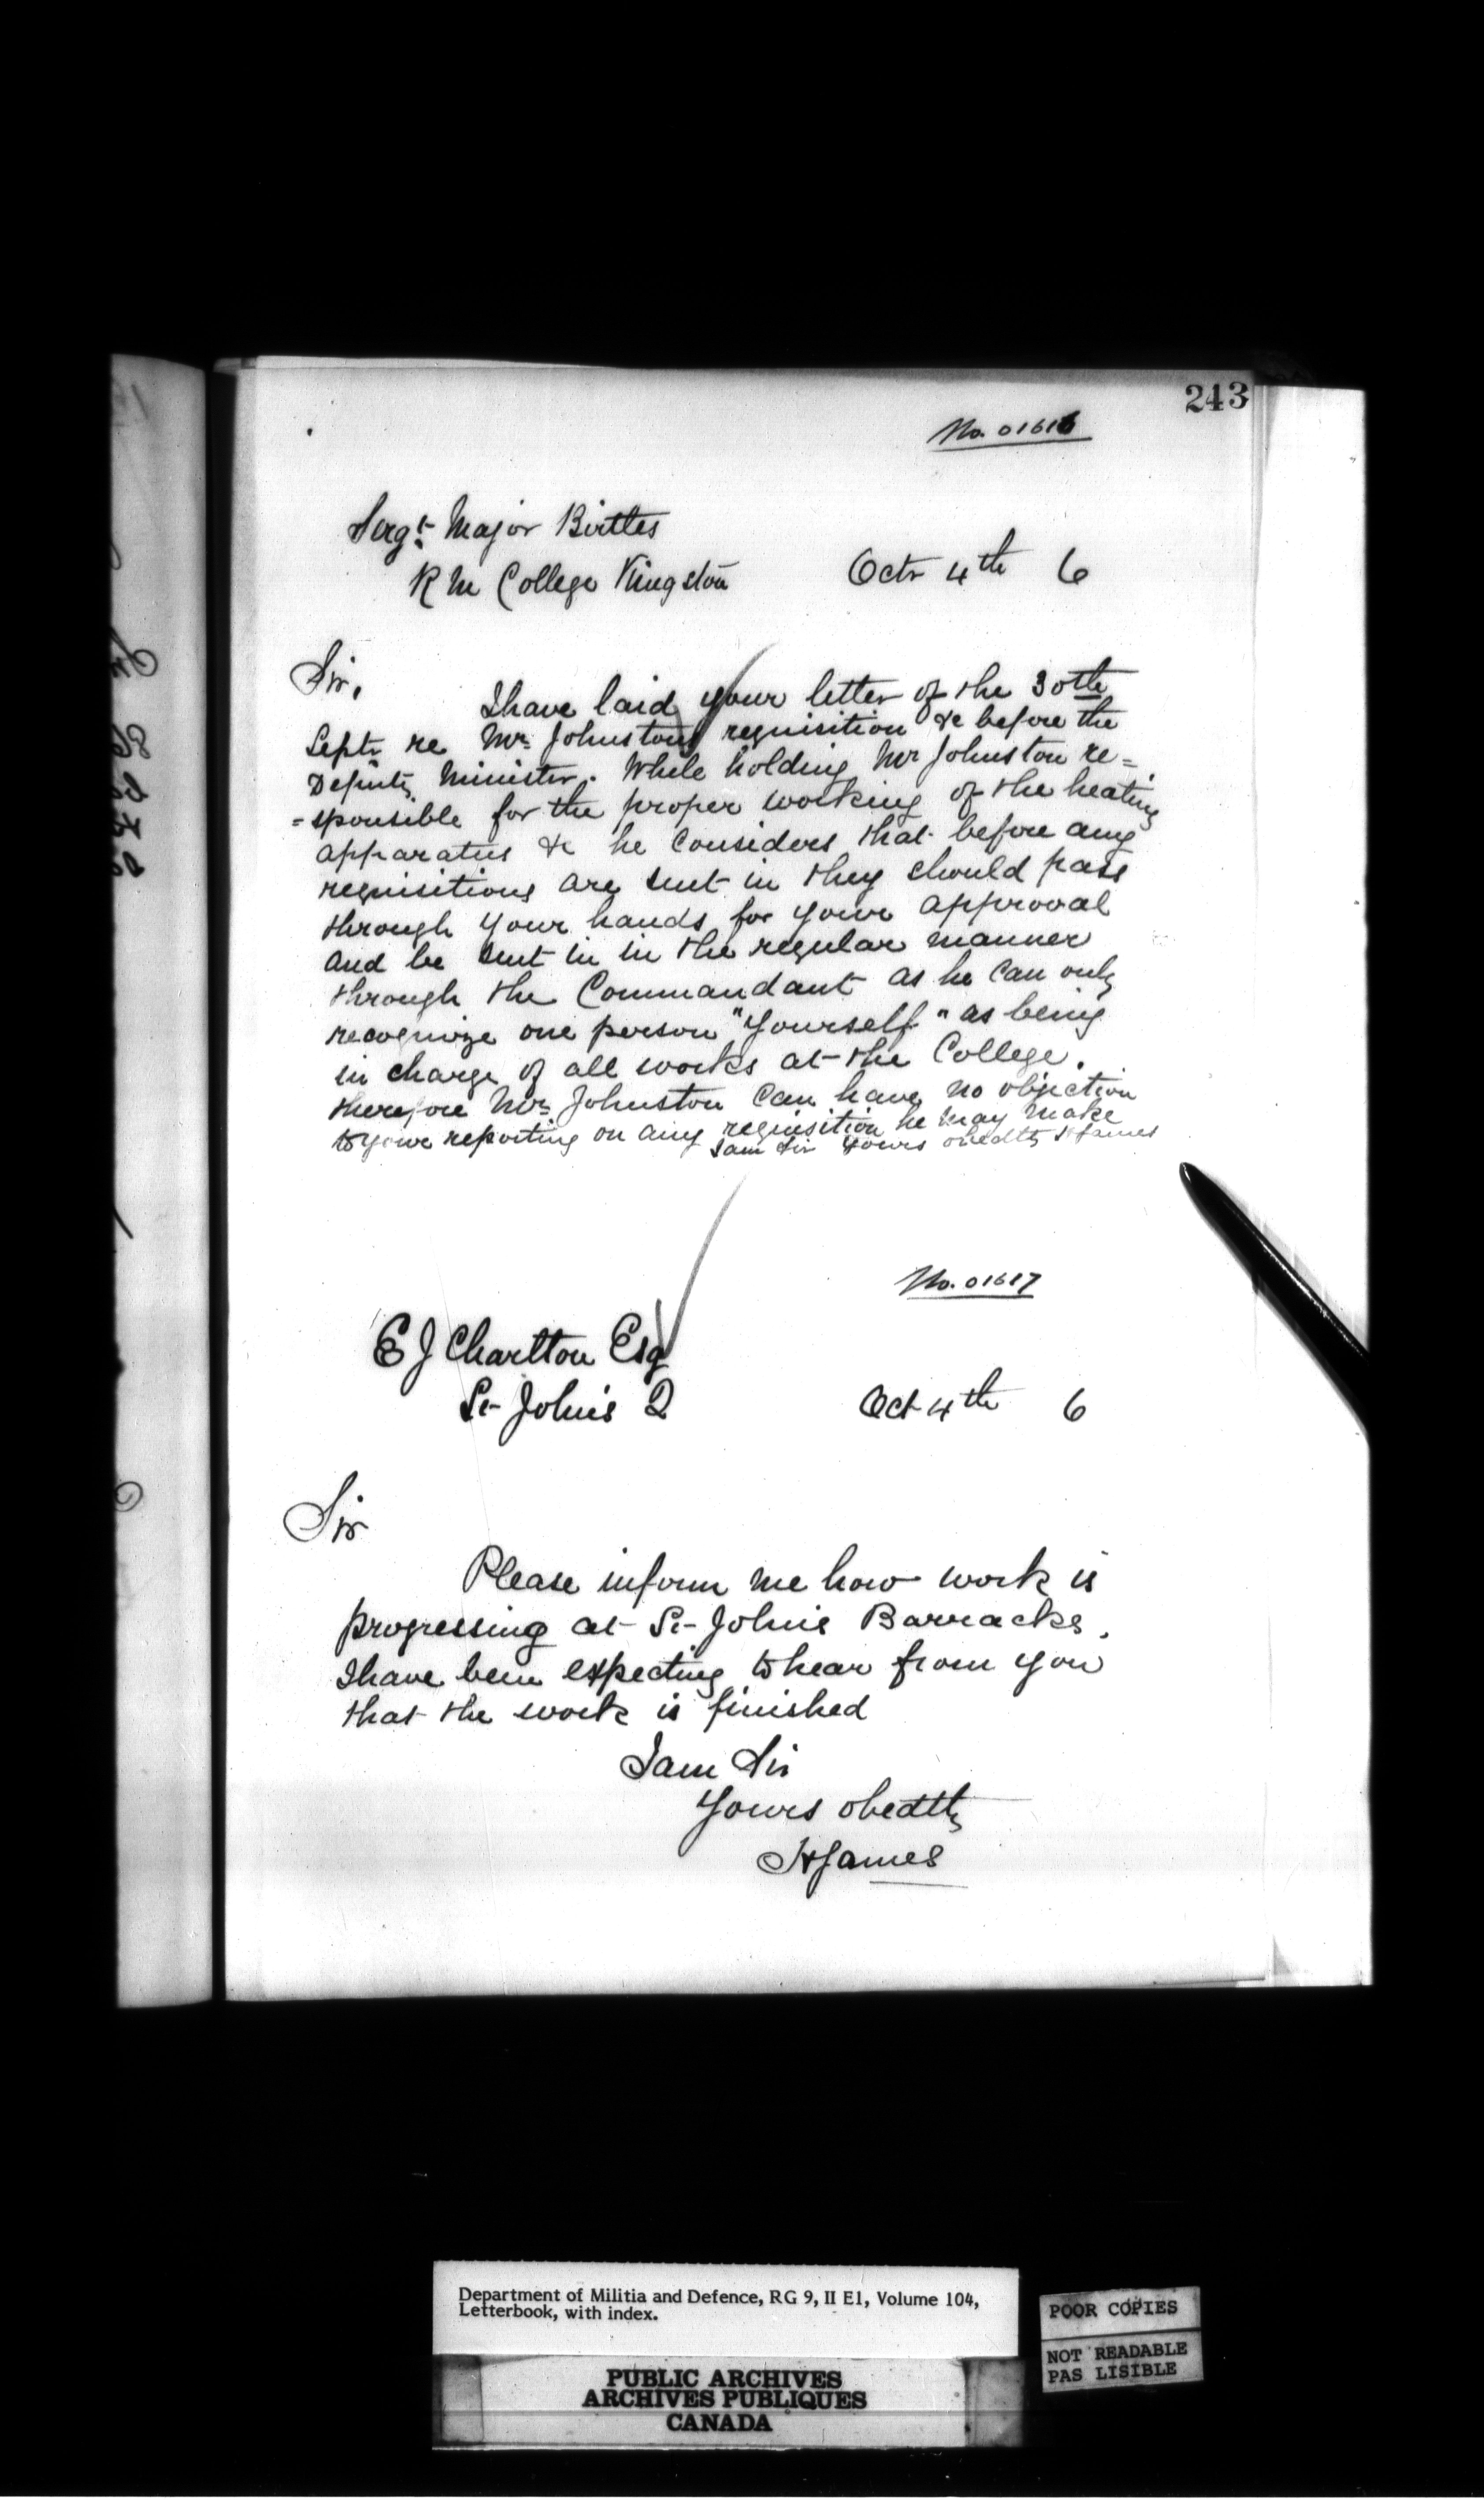 243
No. 01616
Sergt. Major Birtles
R M College Kingston
Octr 4th 6
Sir,
I have laid your letter of the 30th
Septr re Mr Johnstons requisition &c before the
Deputy Minister. While holding Mr Johnston re=
=sponsible for the proper working of the heating
apparatus &c he considers that before any
requisitions are sent in they should pass
through your hands for your approval
and be sent in in the regular manner
through the Commandant as he can only
recognize one person "Yourself" as being
in charge of all works at the College.
therefore Mr Johnston can have no objection
to your reporting on any requisition he may make
I am Sir Yours obedtly H James
No. 01617
E J Charlton Esq
St Johns Q
Oct 4th 6
Sir
Please inform me how work is
progressing at St Johns Barracks.
I have been expecting to hear from you
that the work is finished
I am Sir
Yours obedtly
H James
Department of Militia and Defence, RG 9, II E1, Volume 104,
Letterbook, with index.
PUBLIC ARCHIVES
ARCHIVES PUBLIQUES
CANADA
POOR COPIES
NOT READABLE
PAS LISIBLE